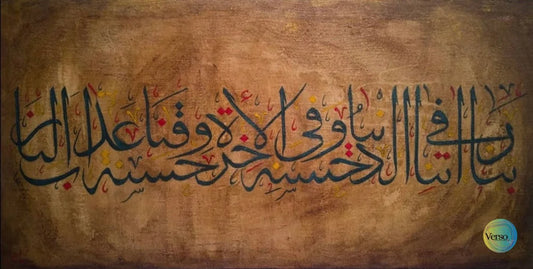 ربنا اتنا فى الدنيا حسنة وفى الأخرة حسنة وقنا عذاب النار
Verso